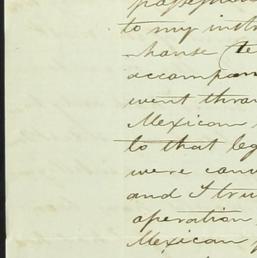 to my instr
-hanse (te
accompan
went throu
Mexican
to that leg
were canv
and I tru
operation
Mexican p